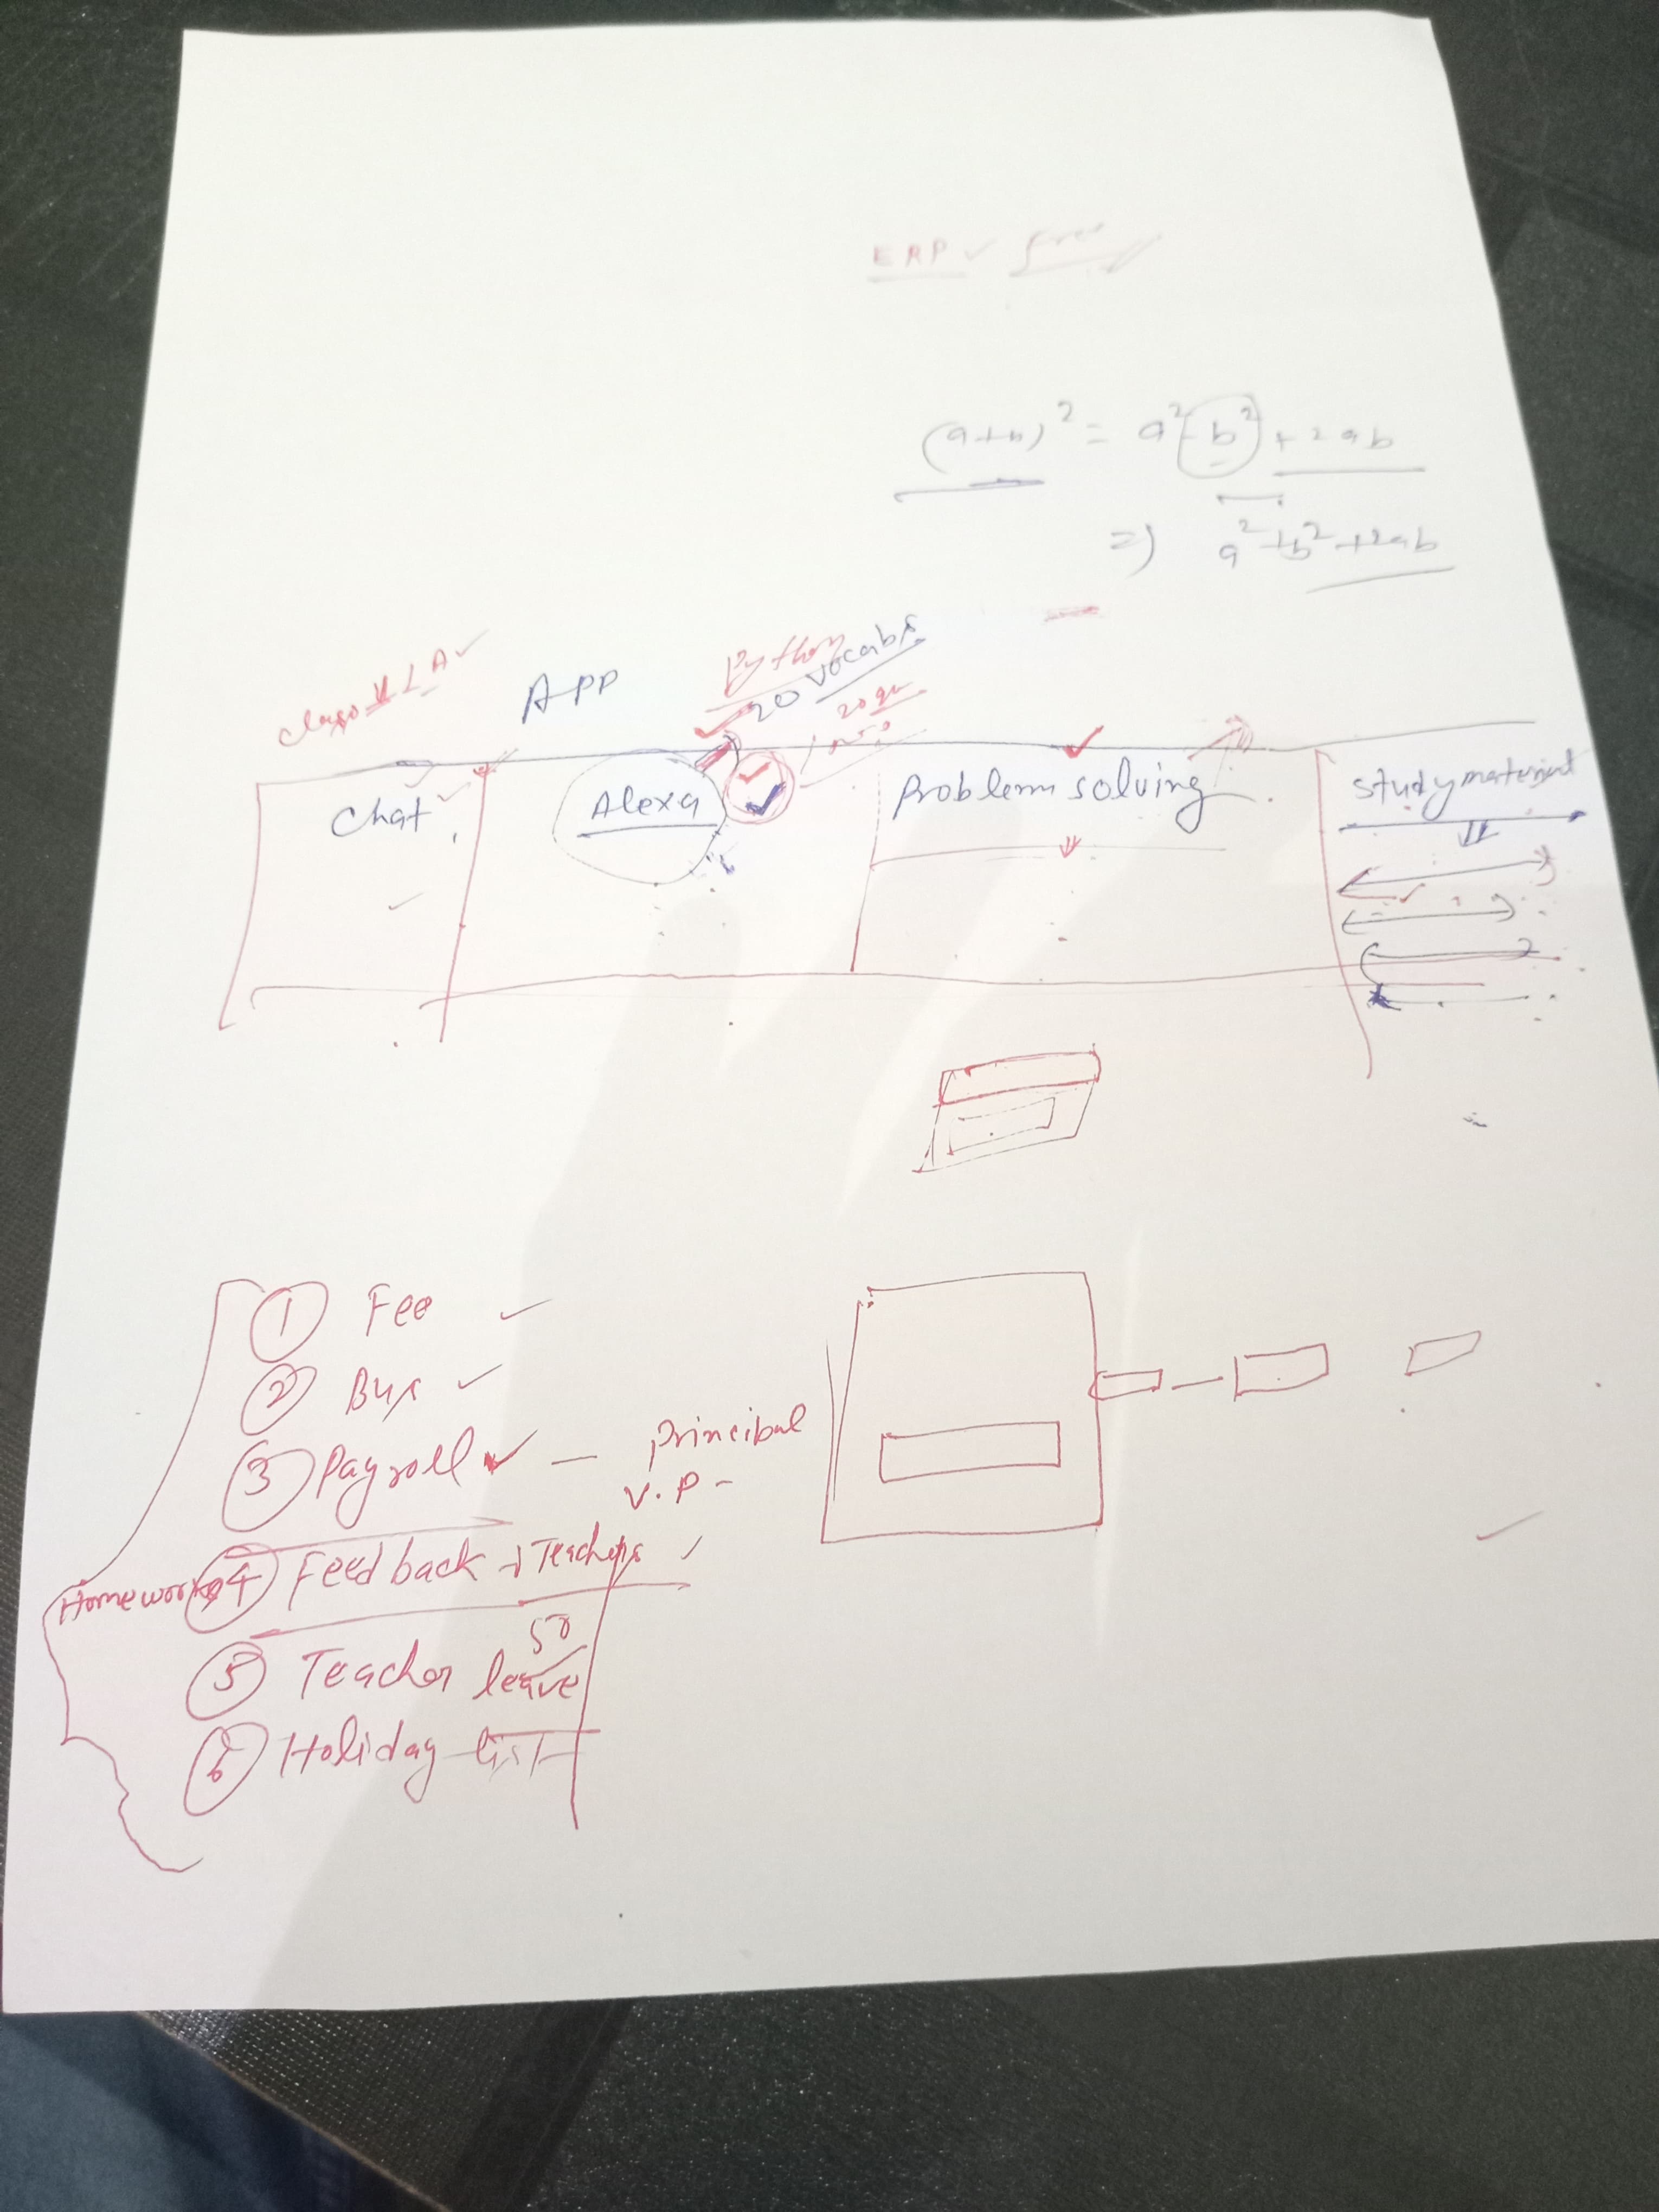 ERP ✓ free
(a+b)² = a² - b² + 2ab
=) a² + b² + 2ab
App
Python
20 vocabs
20 qu
Chat
Alexa
Problem solving
Study material
① Fee ✓
② Bus ✓
③ Payroll ✓ — Principal
V.P -
Homework ④ Feedback → Teachers ✓
50
⑤ Teacher leave
⑥ Holiday list